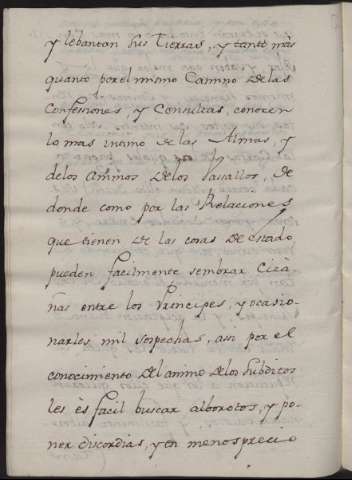 y lebantan sus Tierras, y tanto màs
quanto por el mismo Camino de las
Confesiones, y Consultas, conocen
lo mas intimo de las Almas, y
de los animos de los Vasallos, de
donde como por las Relaciones
que tienen de las cosas de estado
pueden facilmente sembrar Ciça-
ñas entre los Principes, y ocasio-
narles mil sospechas, asi por el
conocimiento del animo de los subditos
les és facil buscar alborotos, y po-
ner discordias, y en menosprecio